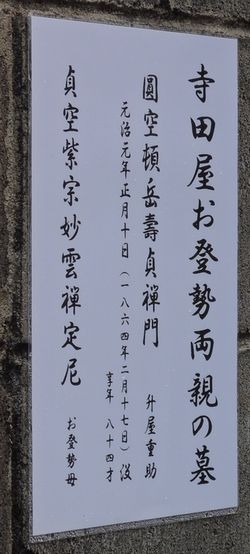 寺田屋お登勢両親の墓
圓空頓岳壽貞禅門 升屋重助
元治元年正月十日(一八六四年二月十七日)没
享年 八十四才
貞空紫宗妙雲禅定尼 お登勢母